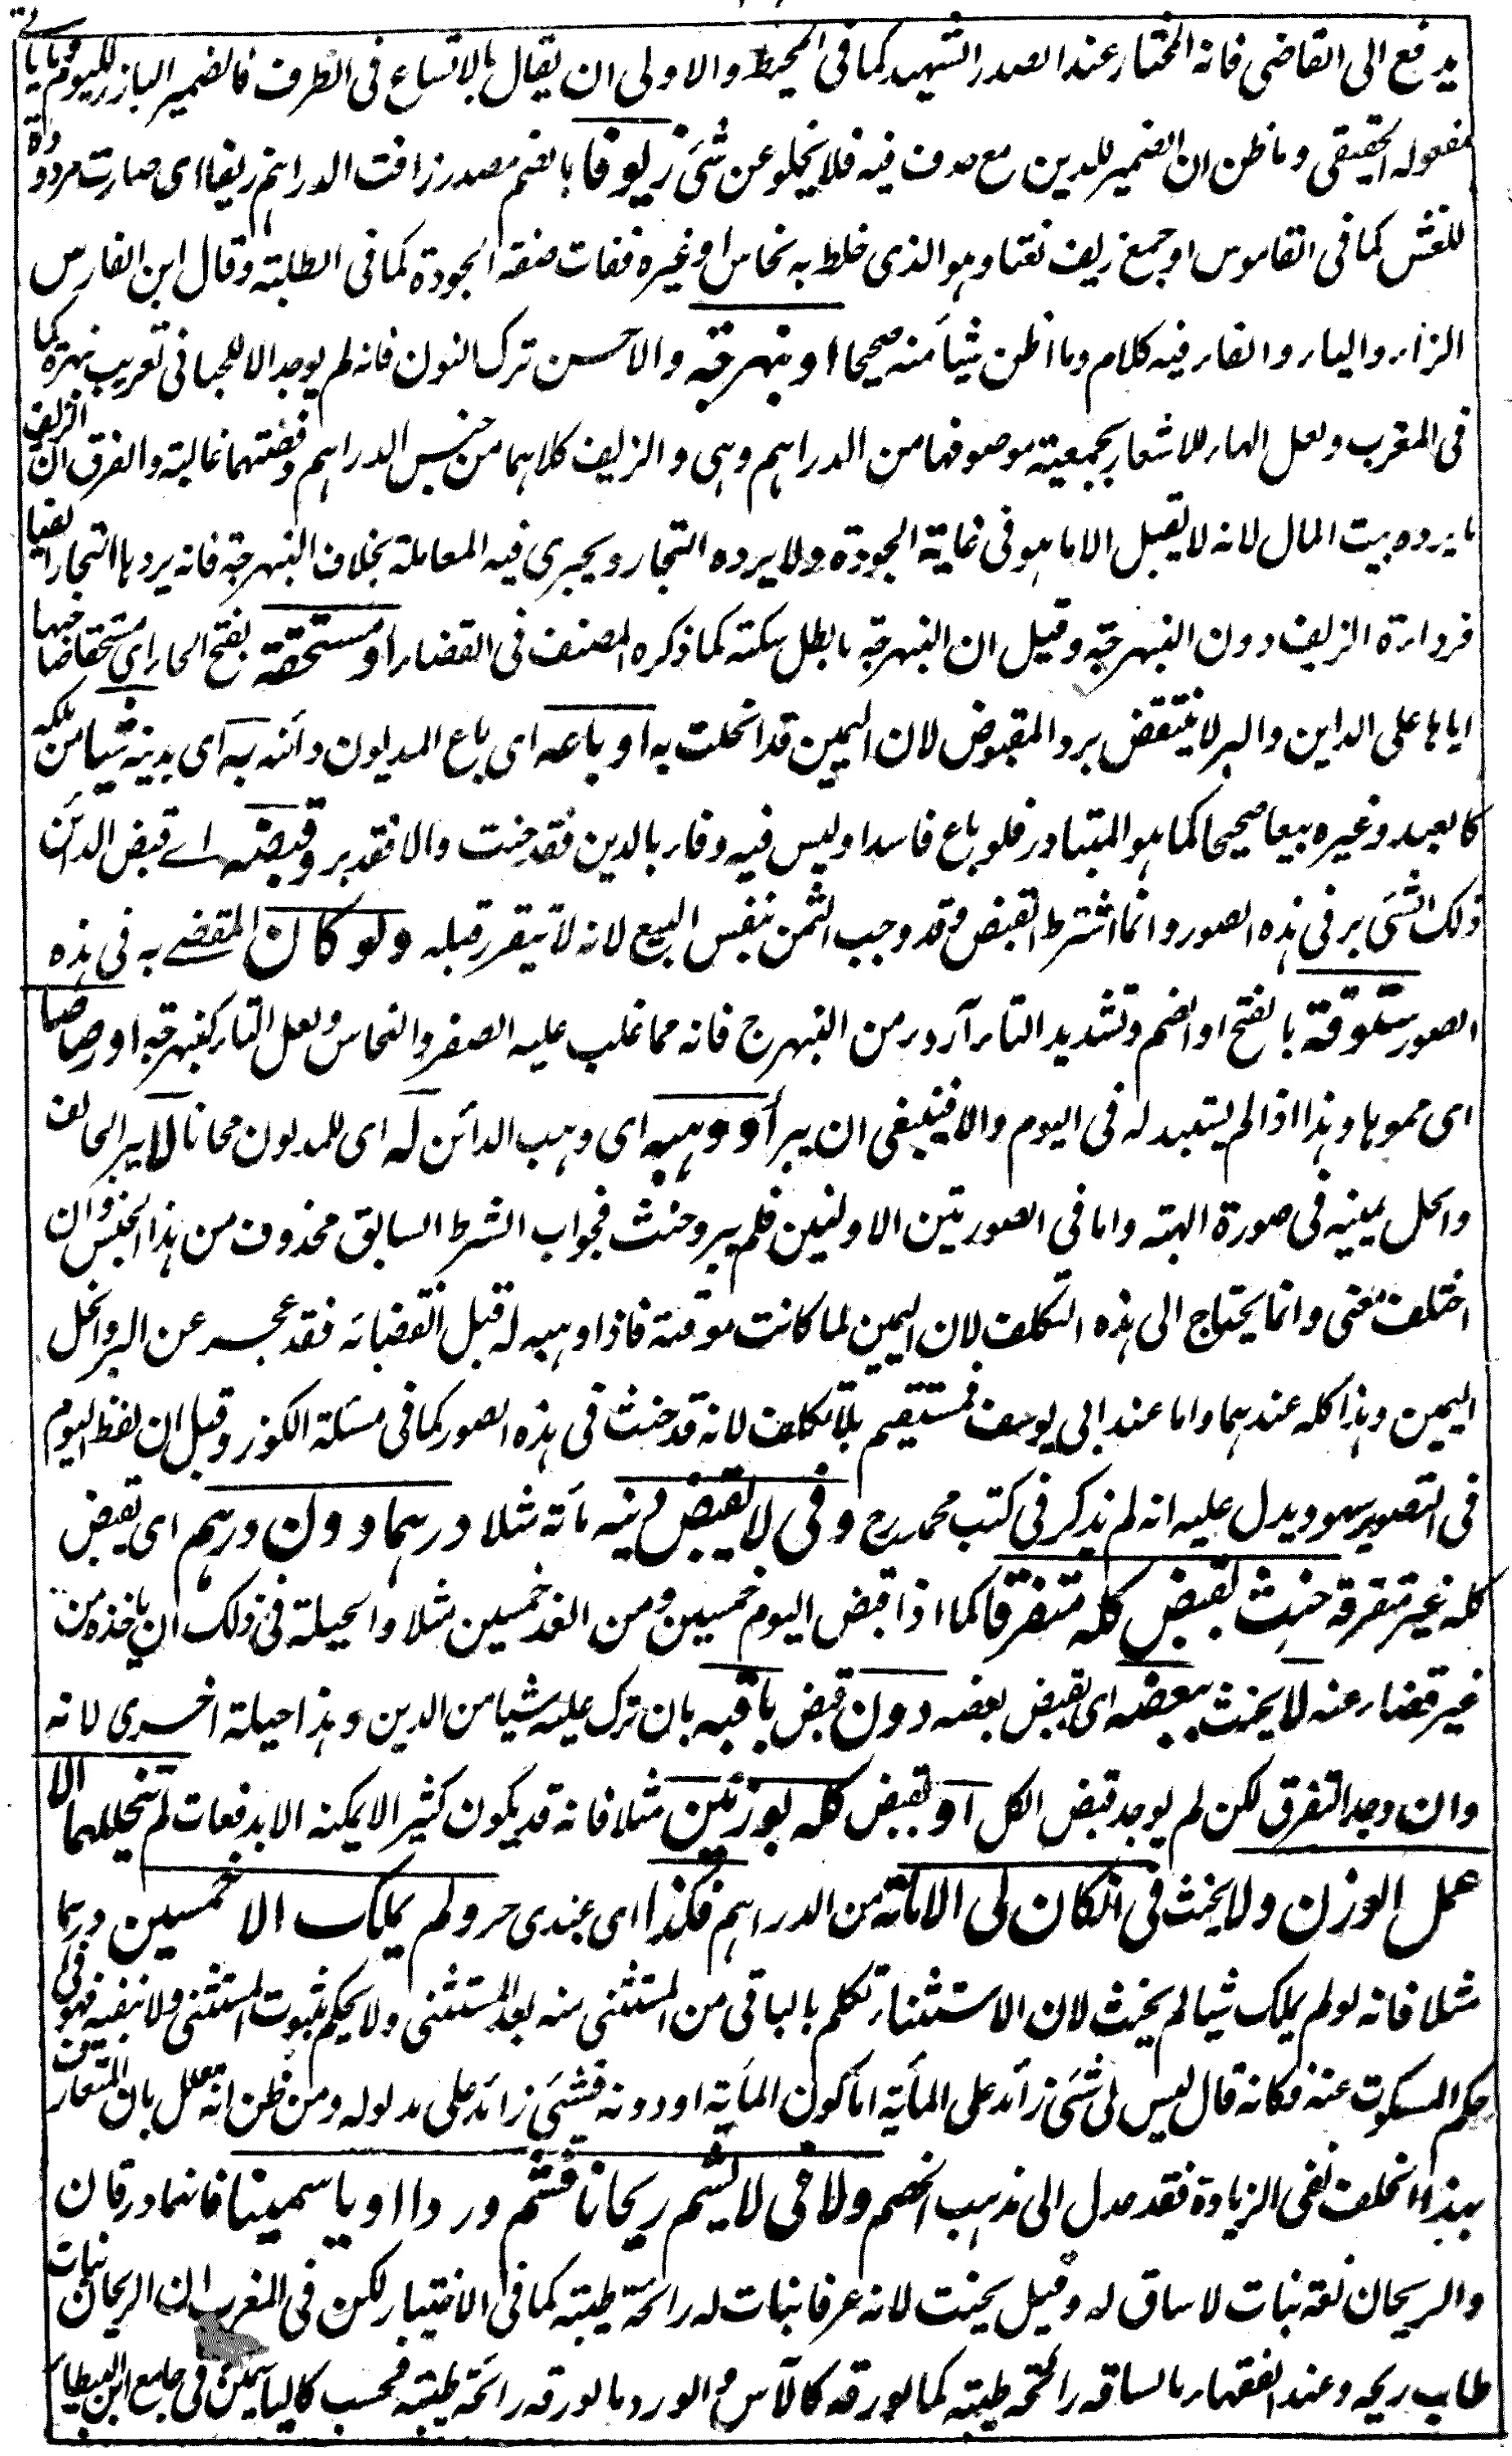 يدفع الى القاضى فانه المختار عند الصدر الشهيد كما فى المحيط والاولى ان يقال بالاتساع فى الظرف فالضمير البارز لليوم
مفعوله الحقيقى وما ظن ان الضمير للدين مع حذف فيه فلا يخلو عن شئ زيوفا بالضم مصدر زافت الدراهم زيفا اى صارت مردودة
للغش كما فى القاموس او جمع زيف نعتا وهو الذى خلط به نحاس او غيره ففات صفة الجودة كما فى الطلبة وقال ابن الفارس
الزاء والياء والفاء فيه كلام وما اظن شيأ منه صحيحا او نبهرجة والاحسن ترك النون فانه لم يوجد الا للجبا فى تعريب نبهره كما
فى المغرب ولعل الهاء للاشعار بجمعية موصوفها من الدراهم وهى والزيف كلاهما من جنس الدراهم وفضتهما غالبة والفرق ان الزيف
ما يرده بيت المال لانه لا يقبل الا ما هو فى غاية الجودة ولا يرده التجار ويجرى فيه المعاملة بخلاف النبهرجة فانه يردها التجار ايضا
فرداءة الزيف دون النبهرجة وقيل ان النبهرجة ما بطل سكته كما ذكره المصنف فى القضاء او مستحقة بفتح الحاء اى مستحقا صاحبها
اياها على الداين والبر لا ينتقض برد المقبوض لان اليمين قد انحلت به او باعه اى باع المديون دائنه به اى بدينه شيأ من ملكه
كالعبد وغيره بيعا صحيحا كما هو المتبادر فلو باع فاسدا وليس فيه وفاء بالدين فقد حنث والا فقد بر وقبضه اے قبض الدائن
ذلك الشئ بر فى هذه الصور وانما اشترط القبض وقد وجب الثمن بنفس البيع لانه لا يتقرر قبله ولو كان المقضے به فى هذه
الصور ستوقة بالفتح او الضم وتشديد التاء اردء من النبهرج فانه مما غلب عليه الصفر والنحاس ولعل التاء كنبهرجة او رصاصا
اى مموها وهذا اذا لم يستبدله فى اليوم والا فينبغى ان يبرأ او وهبه اى وهب الدائن له اى للمديون مجانا لا يبر الحالف
وانحل يمينه فى صورة الهبة واما فى الصورتين الاوليين فلم يبر وحنث فجواب الشرط السابق محذوف من هذا الجنس وان
اختلف معنى وانما يحتاج الى هذه التكلف لان اليمين لما كانت موقتة فاذا وهبه له قبل انقضائه فقد عجز عن البر وانحل
اليمين وهذا كله عندهما واما عند ابى يوسف فمستقيم بلا تكلف لانه قد حنث فى هذه الصور كما فى مسئلة الكوز وقيل ان لفظ اليوم
فى التصوير سهو ويدل عليه انه لم يذكر فى كتب محمد رح وفى لا يقبض دينه مأة مثلا درهما دون درهم اى يقبض
كله غير متفرقة حنث بقبض كله متفرقا كما اذا قبض اليوم خمسين ومن الغد خمسين مثلا والحيلة فى ذلك ان ياخذه من
غير قضاء عنه لا يحنث ببعضه اى بقبض بعضه دون قبض باقيه بان ترك عليه شيأ من الدين وهذا حيلة اخرى لانه
وان وجد التفرق لكن لم يوجد قبض الكل او بقبض كله بوزنين مثلا فانه قد يكون كثيرا لا يمكنه الا بدفعات لم يتخللهما الا
عمل الوزن ولا يحنث فى ان كان لى الا مأة من الدراهم فكذا اى عبدى حر ولم يملك الا خمسين درهما
مثلا فانه لو لم يملك شيأ لم يحنث لان الاستثناء تكلم بالباقى من المستثنى منه بعد المستثنى ولا يحكم بثبوت المستثنى ولا بنفيه فهو فى
حكم المسكوت عنه فكانه قال ليس لى شئ زائد على المأية اما كون المأية او دونه فشئ زائد على مدلوله ومن ظن انه تعلل بان المتعارف
بهذا الحلف نفى الزيادة فقد عدل الى مذهب الخصم ولا فى لا يشم ريحانا فشم وردا او ياسمينا فانهما ورقان
والريحان لغة نبات لا ساق له وقيل يحنث لانه عرفا نبات له رائحة طيبة كما فى الاختيار لكن فى المغرب ان الريحان نبات
طاب ريحه وعند الفقهاء ما لساقه رائحة طيبة كما لورقه كالآس والورد ما لورقه رائحة طيبة فحسب كالياسمين وفى جامع ابن البيطار